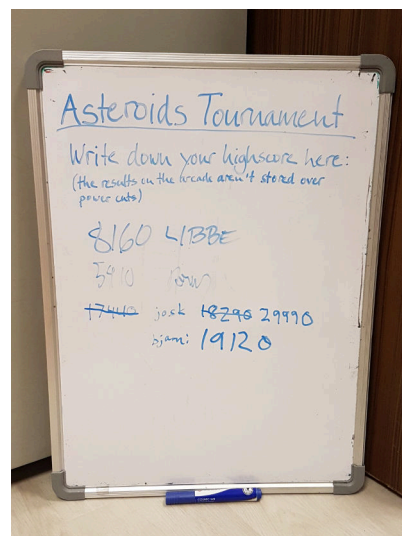 Asteroids Tournament
Write down your highscore here:
(the results on the arcade aren't stored over
power cuts)
8160 LIBBE
5910
17440 josk 18290 29990
bjarni 19120